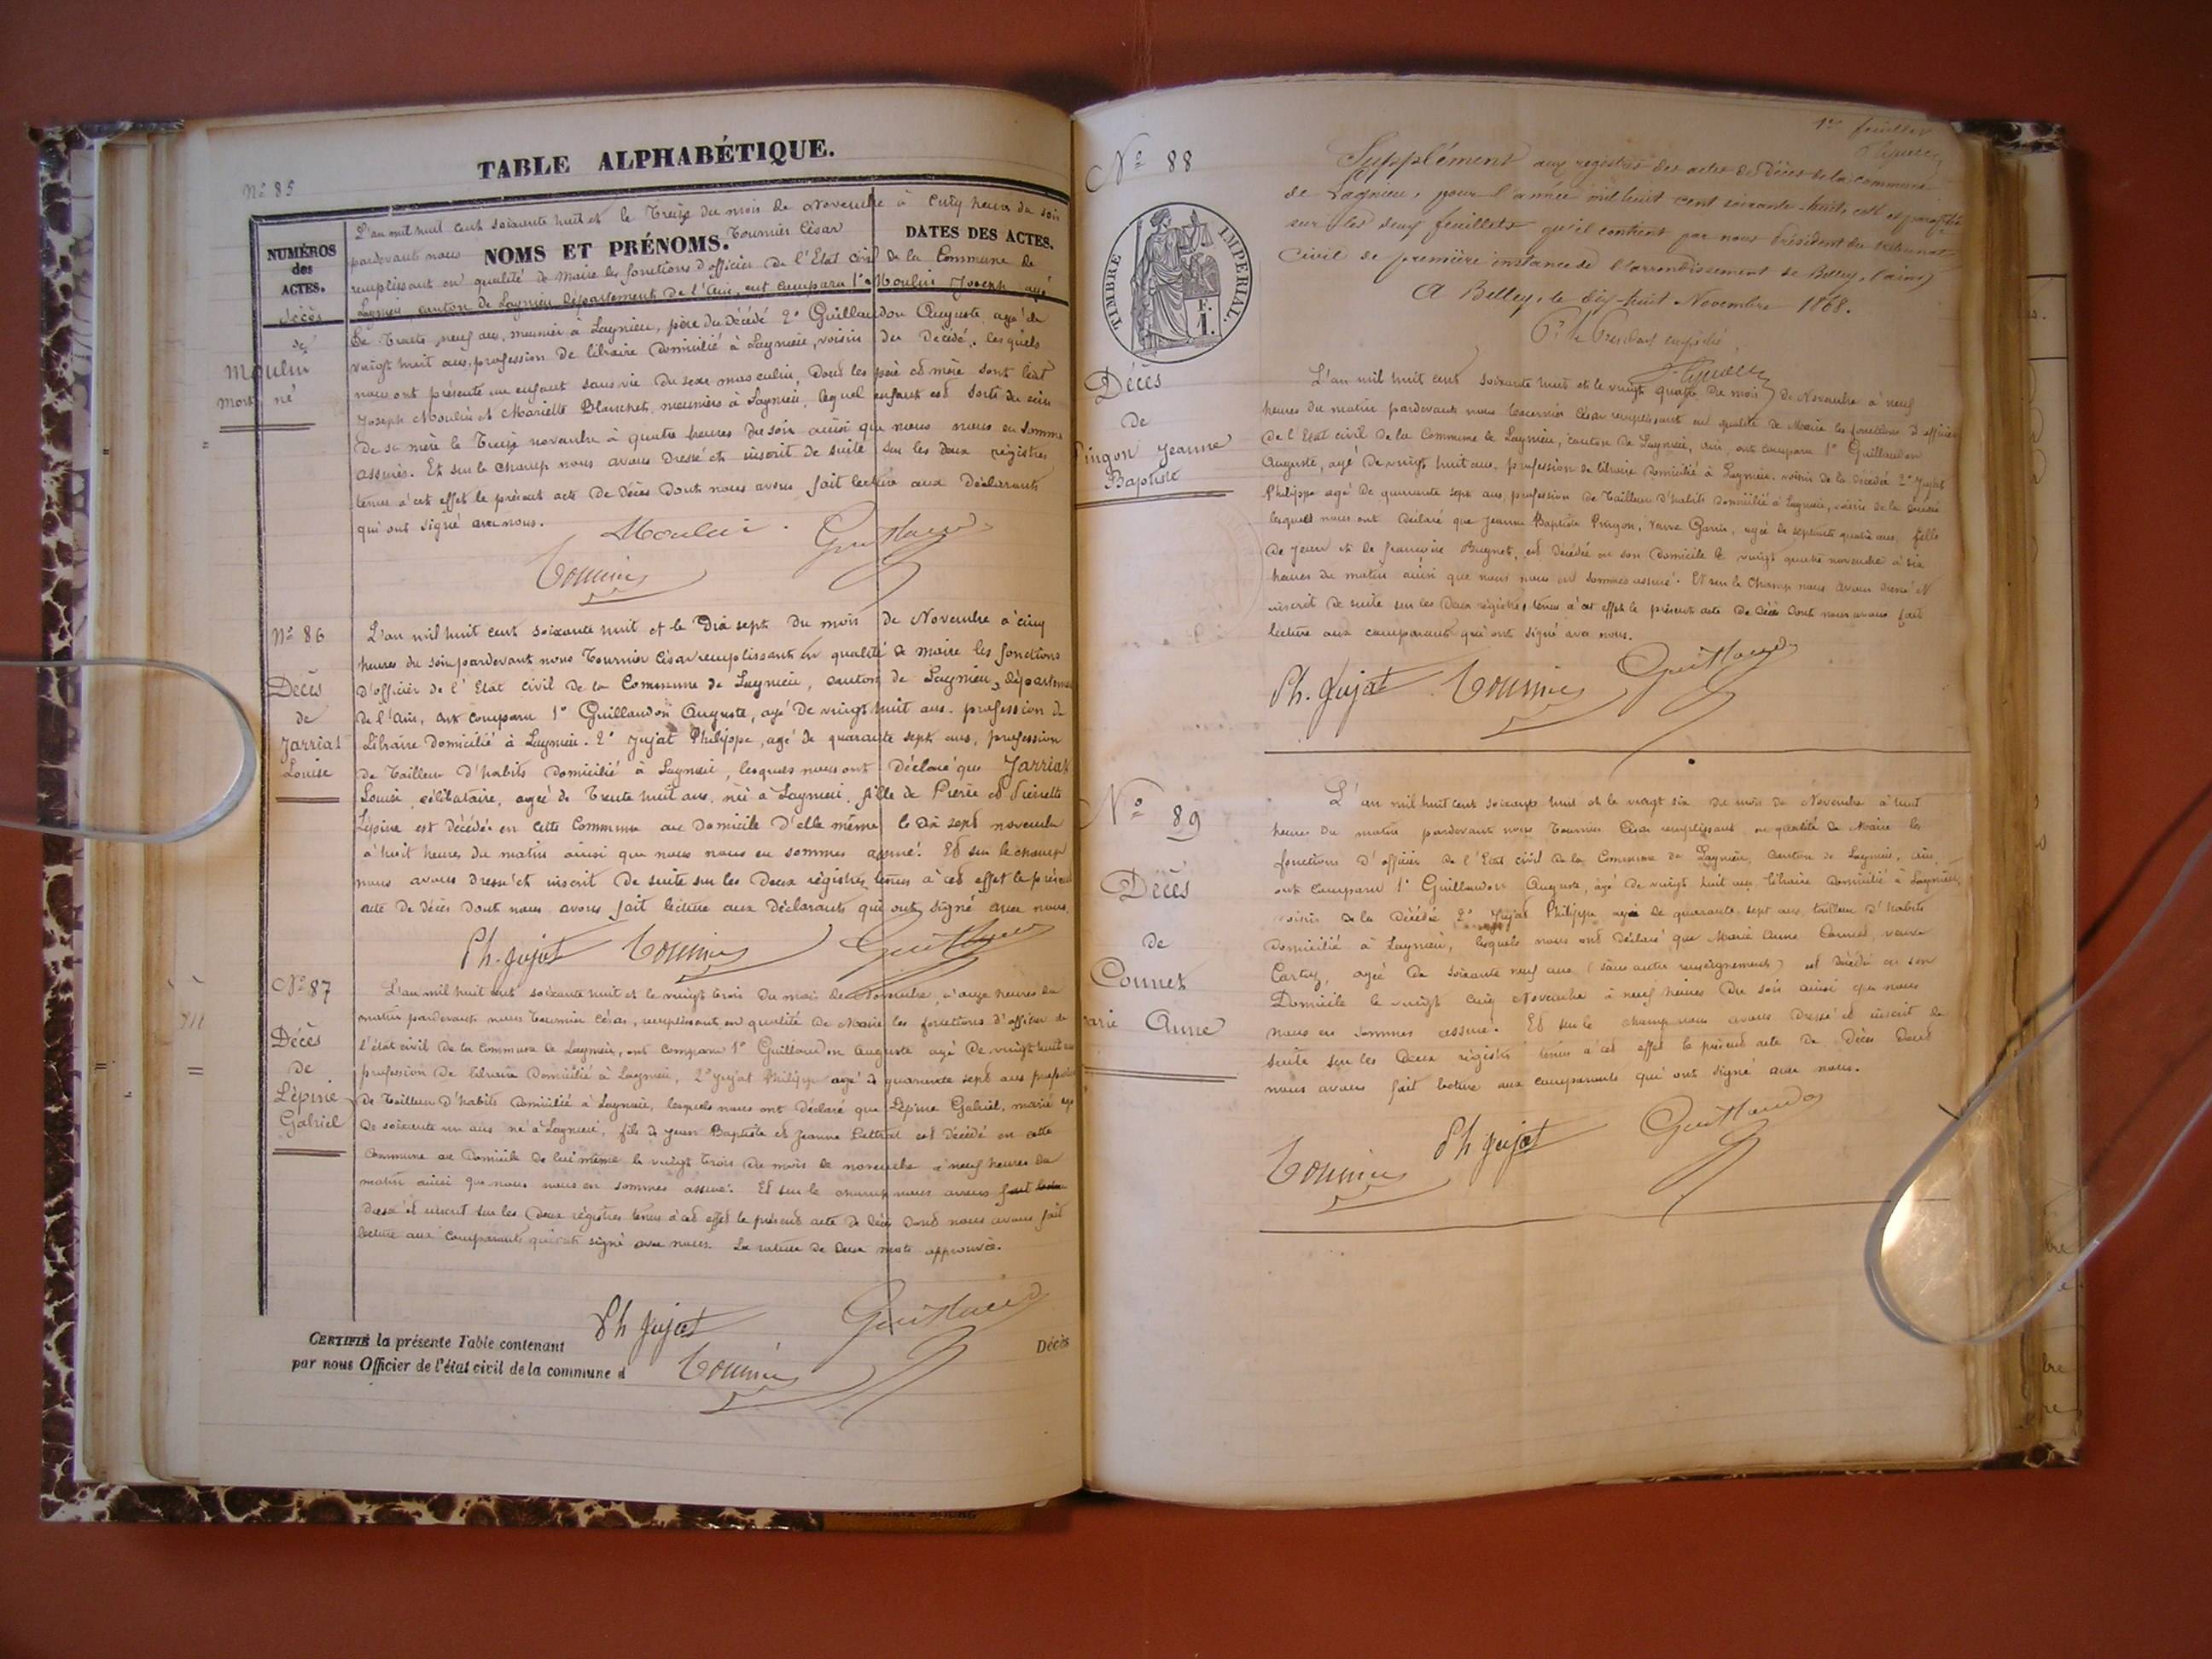 TABLE ALPHABÉTIQUE.
Nº 85
NUMÉROS
des
ACTES.
NOMS ET PRÉNOMS.
DATES DES ACTES.
décès
de
Moulin
mort né
L'an mil huit cent soixante huit et le treize du mois de Novembre à cinq heures du soir
pardevant nous Tournier César
remplissant en qualité de Maire les fonctions d'officier de l'Etat civil de la Commune de
Lagnieu, canton de Lagnieu département de l'Ain, ont comparu 1º Moulin Joseph agé
de trente neuf ans, meunier à Lagnieu, père du décédé 2º Guillaudon Auguste, agé de
vingt huit ans, profession de libraire domicilié à Lagnieu, voisin du décédé, lesquels
nous ont présenté un enfant sans vie du sexe masculin, dont les père et mère sont
Joseph Moulin et Mariette Blanchet, meuniers à Lagnieu, lequel enfant est sorti du sein
de sa mère le treize novembre à quatre heures du soir ainsi que nous nous en sommes
assurés. Et sur le champ nous avons dressé et inscrit de suite sur les deux régistres
tenus à cet effet le présent acte de décès dont nous avons fait lecture aux déclarants
qui ont signé avec nous.
Moulin Guillaudon
Tournier
Nº 86
Décès
de
Jarriat
Louise
L'an mil huit cent soixante huit et le dix sept du mois de Novembre à cinq
heures du soir pardevant nous Tournier César remplissant en qualité de maire les fonctions
d'officier de l'Etat civil de la Commune de Lagnieu, canton de Lagnieu, département
de l'Ain, ont comparu 1º Guillaudon Auguste, agé de vingt huit ans, profession de
libraire domicilié à Lagnieu. 2º Jujat Philippe, agé de quarante sept ans, profession
de tailleur d'habits domicilié à Lagnieu, lesquels nous ont déclaré que Jarriat
Louise, célibataire, agée de trente huit ans, née à Lagnieu, fille de Pierre et Pierrette
Lépine est décédée en cette Commune au domicile d'elle même le dix sept novembre
à huit heures du matin ainsi que nous nous en sommes assuré. Et sur le champ
nous avons dressé et inscrit de suite sur les deux régistres tenus à cet effet le présent
acte de décès dont nous avons fait lecture aux déclarants qui ont signé avec nous.
Ph. Jujat Tournier Guillaudon
Nº 87
Décès
de
Lépine
Gabriel
L'an mil huit cent soixante huit et le vingt trois du mois de Novembre, à onze heures du
matin pardevant nous Tournier César, remplissant en qualité de Maire les fonctions d'officier de
l'état civil de la Commune de Lagnieu, ont comparu 1º Guillaudon Auguste agé de vingt huit ans
profession de libraire domicilié à Lagnieu, 2º Jujat Philippe agé de quarante sept ans profession
de tailleur d'habits domicilié à Lagnieu, lesquels nous ont déclaré que Lépine Gabriel, marié agé
de soixante un ans né à Lagnieu, fils de Jean Baptiste et Jeanne est décédé en cette
Commune au domicile de lui même le vingt trois du mois de novembre à neuf heures du
matin ainsi que nous nous en sommes assuré. Et sur le champ nous avons fait lecture
dressé et inscrit sur les deux régistres tenus à cet effet le présent acte de décès dont nous avons fait
lecture aux comparants qui ont signé avec nous. La rature de deux mots approuvée.
Ph Jujat Guillaudon
CERTIFIÉ la présente Table contenant Décès
par nous Officier de l'état civil de la commune d
Tournier
1er feuillet
Nº 88
Supplément aux registres des actes de Décès de la commune
de Lagnieu, pour l'année mil huit cent soixante-huit, coté et paraphé
sur les deux feuillets qu'il contient par nous Président du tribunal
civil de première instance de l'arrondissement de Belley, (ain)
A Belley, le dix-huit Novembre 1868.
Pr le Président empêché
TIMBRE IMPÉRIAL.
F.
1.
Décès
de
Pingon Jeanne
Baptiste
L'an mil huit cent soixante huit et le vingt quatre du mois de Novembre à neuf
heures du matin pardevant nous Tournier César remplissant en qualité de Maire les fonctions d'officier
de l'Etat civil de la Commune de Lagnieu, canton de Lagnieu, Ain, ont comparu 1º Guillaudon
Auguste, agé de vingt huit ans, profession de libraire domicilié à Lagnieu, voisin de la décédée 2º Jujat
Philippe agé de quarante sept ans, profession de tailleur d'habits domicilié à Lagnieu, voisin de la décédée
lesquels nous ont déclaré que Jeanne Baptiste Pingon, veuve Garin, agée de septante quatre ans, fille
de Jean et de Françoise Bugnet, est décédée en son domicile le vingt quatre novembre à six
heures du matin ainsi que nous nous en sommes assuré. Et sur le champ nous avons dressé et
inscrit de suite sur les deux régistres tenus à cet effet le présent acte de décès dont nous avons fait
lecture aux comparants qui ont signé avec nous.
Ph. Jujat Tournier Guillaudon
Nº 89
Décès
de
Connet
Marie Anne
L'an mil huit cent soixante huit et le vingt six du mois de Novembre à huit
heures du matin pardevant nous Tournier César remplissant en qualité de Maire les
fonctions d'officier de l'Etat civil de la Commune de Lagnieu, canton de Lagnieu, Ain,
ont comparu 1º Guillaudon Auguste, agé de vingt huit ans, libraire domicilié à Lagnieu,
voisin de la décédée 2º Jujat Philippe agé de quarante sept ans, tailleur d'habits
domicilié à Lagnieu, lesquels nous ont déclaré que Marie Anne Connet, veuve
agée de soixante neuf ans (sans autres renseignements) est décédée en son
domicile le vingt cinq Novembre à neuf heures du soir ainsi que nous
nous en sommes assuré. Et sur le champ nous avons dressé et inscrit de
suite sur les deux régistres tenus à cet effet le présent acte de décès dont
nous avons fait lecture aux comparants qui ont signé avec nous.
Tournier Ph Jujat Guillaudon